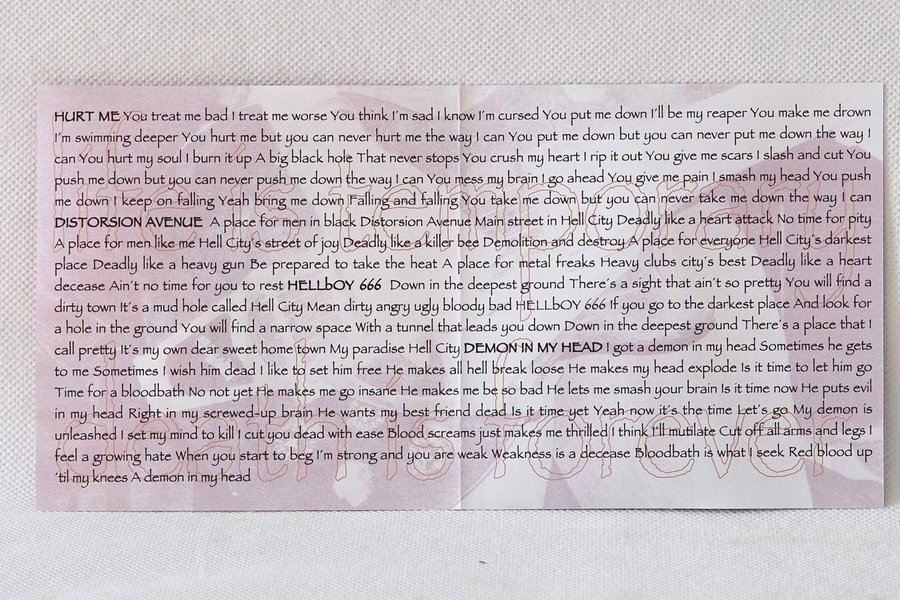 HURT ME You treat me bad I treat me worse You think I'm sad I know I'm cursed You put me down I'll be my reaper You make me drown
I'm swimming deeper You hurt me but you can never hurt me the way I can You put me down but you can never put me down the way I
can You hurt my soul I burn it up A big black hole That never stops You crush my heart I rip it out You give me scars I slash and cut You
push me down but you can never push me down the way I can You mess my brain I go ahead You give me pain I smash my head You push
me down I keep on falling Yeah bring me down Falling and falling You take me down but you can never take me down the way I can
DISTORSION AVENUE A place for men in black Distorsion Avenue Main street in Hell City Deadly like a heart attack No time for pity
A place for men like me Hell City's street of joy Deadly like a killer bee Demolition and destroy A place for everyone Hell City's darkest
place Deadly like a heavy gun Be prepared to take the heat A place for metal freaks Heavy clubs city's best Deadly like a heart
decease Ain't no time for you to rest HELLbOY 666 Down in the deepest ground There's a sight that ain't so pretty You will find a
dirty town It's a mud hole called Hell City Mean dirty angry ugly bloody bad HELLbOY 666 If you go to the darkest place And look for
a hole in the ground You will find a narrow space With a tunnel that leads you down Down in the deepest ground There's a place that I
call pretty It's my own dear sweet home town My paradise Hell City DEMON IN MY HEAD I got a demon in my head Sometimes he gets
to me Sometimes I wish him dead I like to set him free He makes all hell break loose He makes my head explode Is it time to let him go
Time for a bloodbath No not yet He makes me go insane He makes me be so bad He lets me smash your brain Is it time now He puts evil
in my head Right in my screwed-up brain He wants my best friend dead Is it time yet Yeah now it's the time Let's go My demon is
unleashed I set my mind to kill I cut you dead with ease Blood screams just makes me thrilled I think I'll mutilate Cut off all arms and legs I
feel a growing hate When you start to beg I'm strong and you are weak Weakness is a decease Bloodbath is what I seek Red blood up
'til my knees A demon in my head
is temporary
death is forever